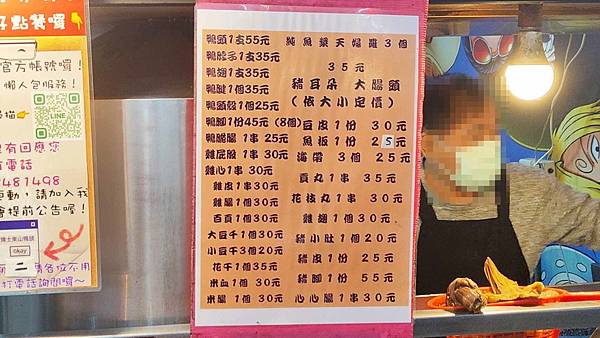 好點餐囉👇
官方帳號囉!
懶人包服務!
LINE
有回應您
電話
481498
更動,請加入我
會提前公告喔!
博士東山鴨頭
okay
二
為各位不用
打電話詢問囉~
鴨頭1支55元
鴨脖子1支35元
鴨翅1支35元
鴨腱1支35元
鴨頭殼1個25元
鴨腳1份45元(8個)
鴨脆腸1串25元
雞屁股1串30元
雞心1串30元
雞皮1串30元
雞腸1個30元
百頁1個30元
大豆干1個30元
小豆干3個20元
花干1個35元
米血1個30元
米腸1個30元
純魚漿天婦羅3個
35元
豬耳朵 大腸頭
(依大小定價)
豆皮1份 30元
魚板1份 25元
海帶3個 25元
貢丸1串 35元
花枝丸1串 30元
雞翅1個30元
豬小肚1個20元
豬皮1份 25元
豬腳1份 55元
心心腸1串30元